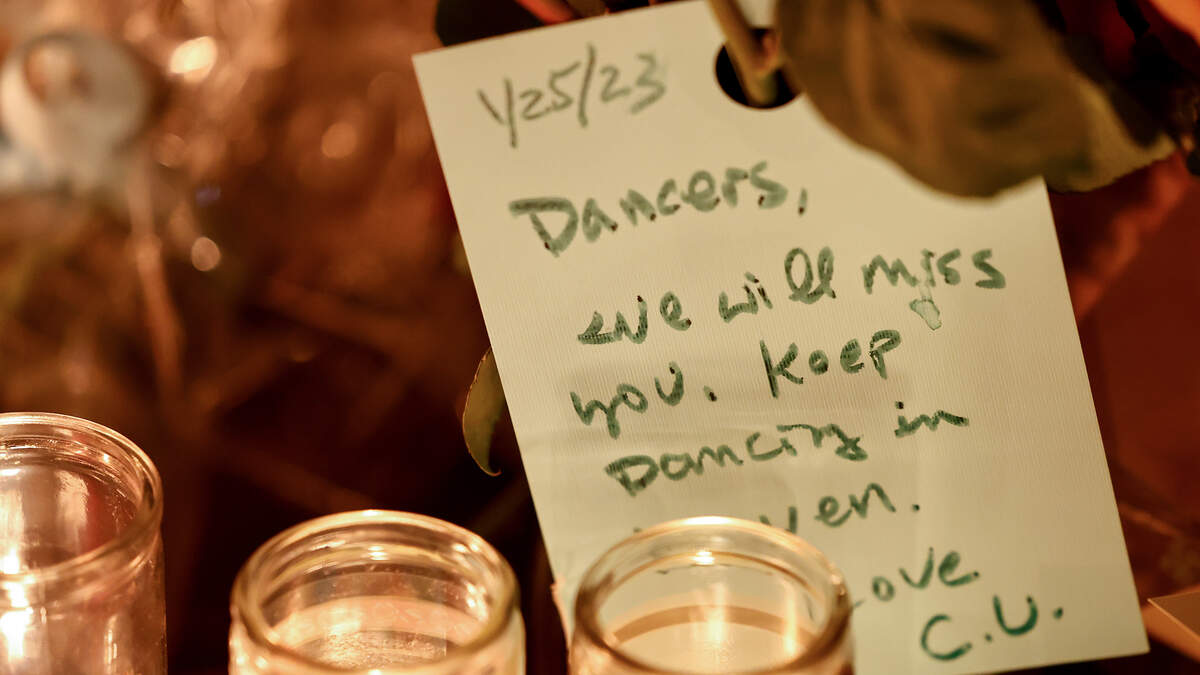 1/25/23
Dancers,
we will miss
you. Keep
Dancing in
heaven.
Love
C.U.